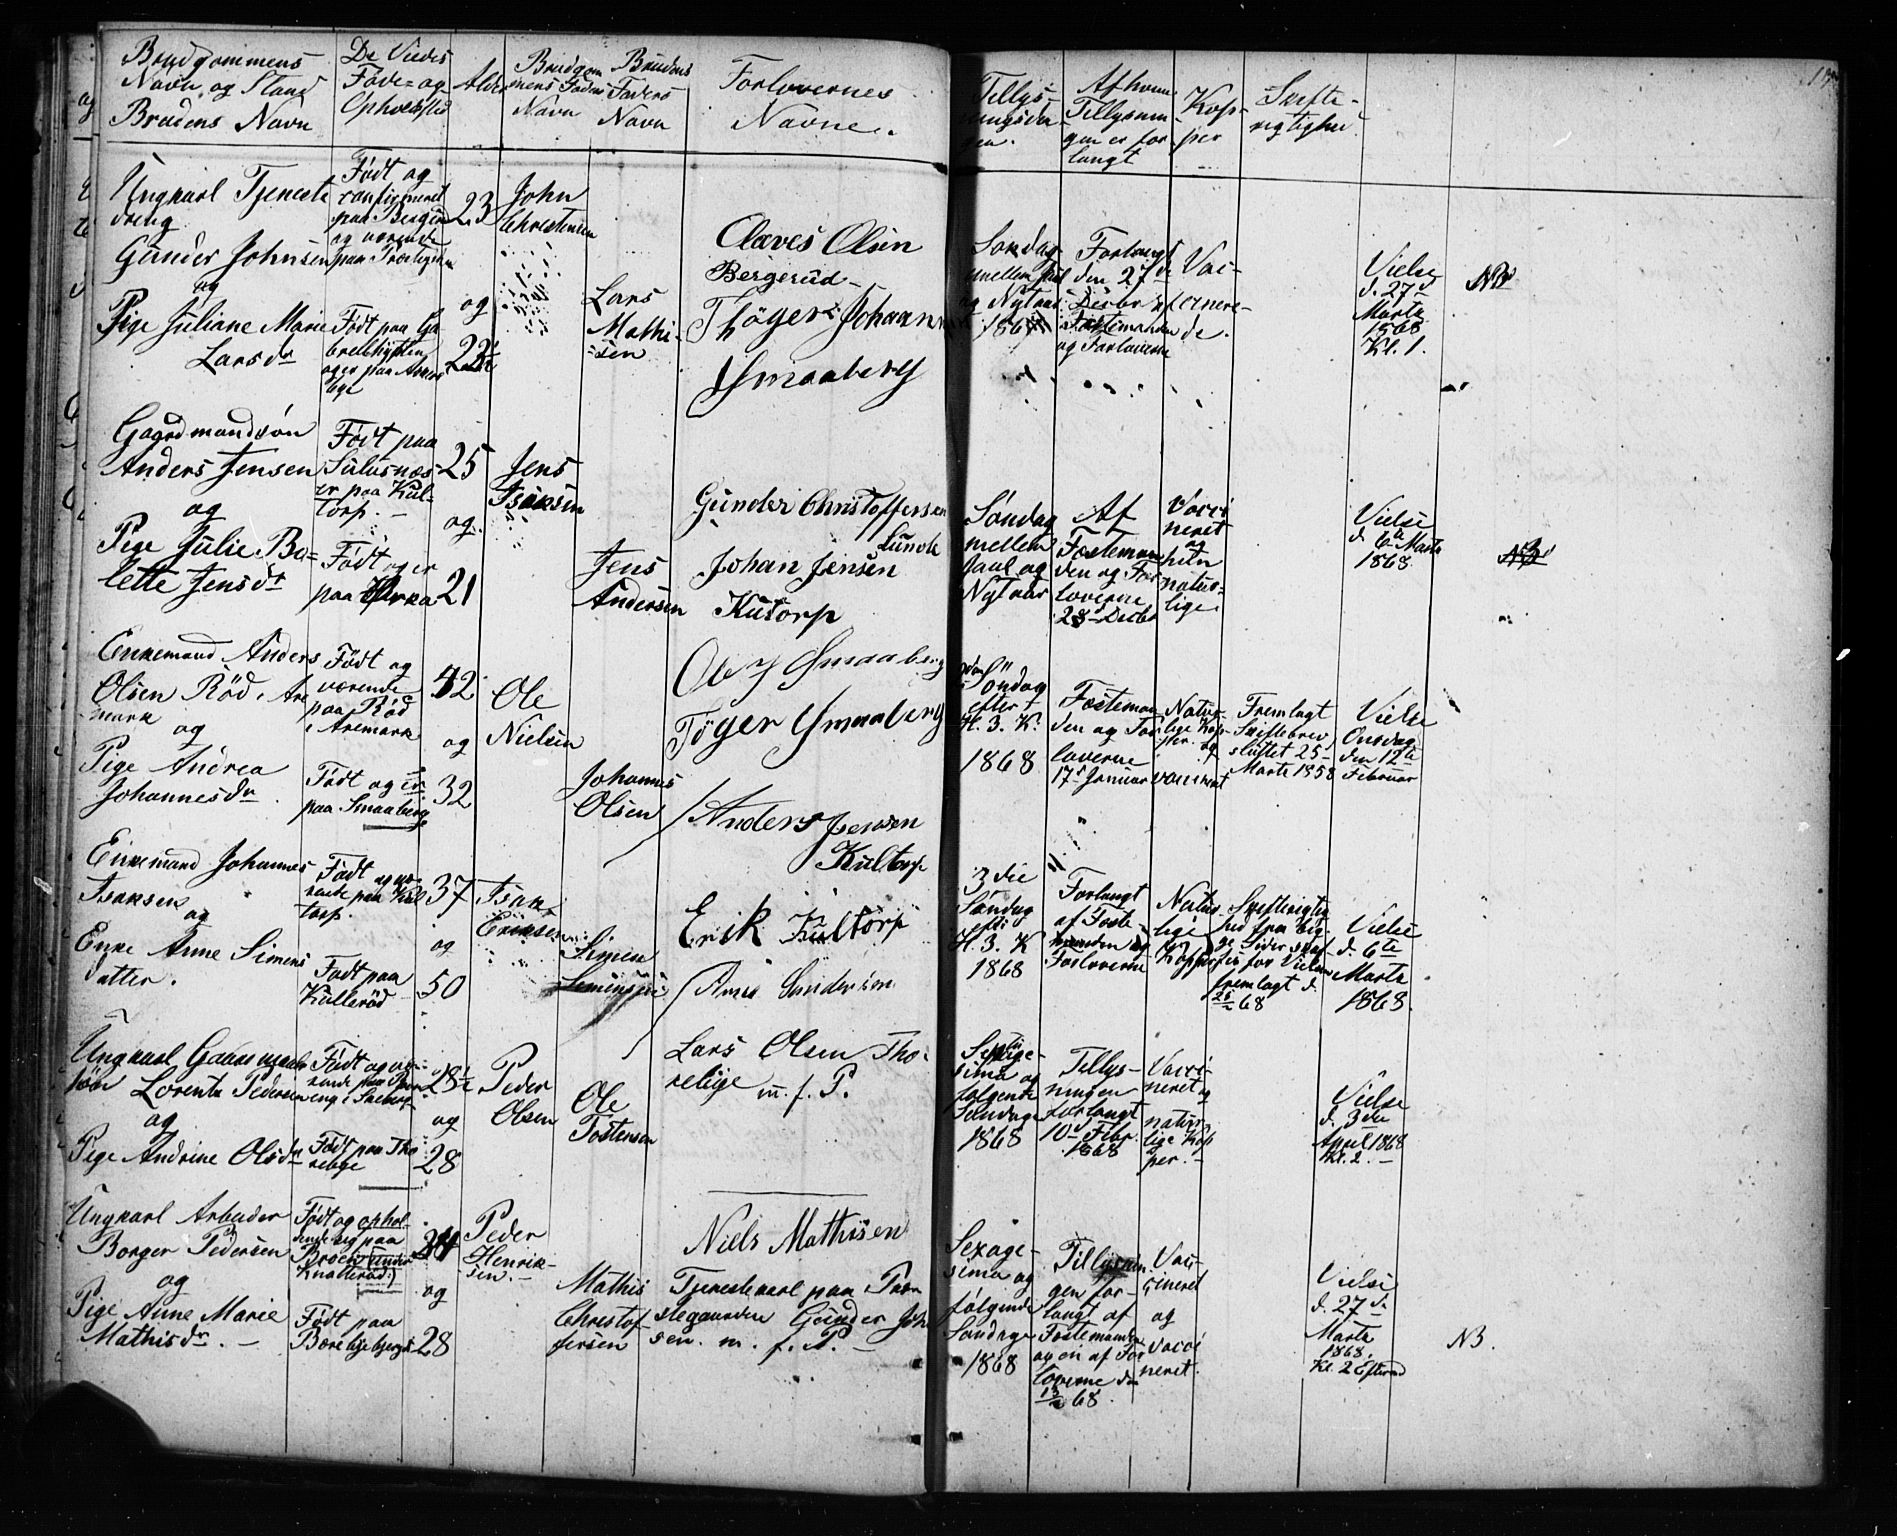 Brudgommens
Navn og Stand
Brudens Navn
De Viedes
Føde- og
Opholdssted
Alder
Brudgom
mens Faders
Navn
Brudens
Faders
Navn
Forlovernes
Navne.
Tillys-
ningsda-
gen.
Af hvem
Tillysnin
gen er for
langt
Kop-
per
Skifte-
rigtighed
Ungkarl Tjeneste
dreng
Gunder Johnsen
og
Pige Juliane Marie
Larsdr
Født og
confirmeret
paa Bergerud
og værende
paa
Født paa
23
og
John
Christensen
Lars
Mathi-
sen
Olaves Olsen
Bergerud
Thøger Johann
Smaaberg
Søndag
mellem Jul
og Nytaar
1867
Forlangt
den 27de
Decbr af
Fæstemanden
og Forloverne
Vac-
cinere-
de.
Vielse
d. 27d
Marts
1868
Kl. 1.
NB
Gaardmandsøn
Anders Jensen
og
Pige Julie Bo-
lette Jensdr
Født paa
er paa Kul-
torp.
Født og er
paa
25
og
21
Jens
Isaksen
Jens
Andersen
Gunder Christoffersen
Lunde
Johan Jensen
Kultorp
Søndag
mellem
Juul og
Nytaar
Af
Fæsteman
den og For
loverne
28d Decbr
Vacci
neret
og
hun
natur-
lige
Vielse
d. 6te Marts
1868
NB
Enkemand Anders
Olsen Rød, Are
mark
og
Pige Andrea
Johannesdr
Født og
værende
paa Rød
i Aremark
Født og er
paa Smaaberg
42
og
32
Ole
Nielsen
Johannes
Olsen
Ole J Smaaberg
Tøger Smaaberg
Søndag
efter
H. 3. K.
1868
Fæsteman
den og For
loverne
17d Januar
Natur-
lige Kop-
per og
vaccineret
Fremlagt
Skiftebrev
sluttet 25
Marts 1858
Vielse
Onsdag
den 12te
Februar
Enkemand Johannes
Isaksen
og
Enke Anne Simens
datter.
Født og væ-
rende paa Kul
torp.
Født paa
Kullerød
37
og
50
Isak
Eriksen
Simen
Simensen
Anders Jensen
Kultorp
Erik Kultorp
Arne Gundersen
3die
Søndag
efter
H. 3. K
1868
Forlangt
af Fæste
manden og
Forloverne
Natur
lige
Kopper
Skifterigtig
hed fra beg-
ge Sider skaf
fes for Vielsen
fremlagt d.
68
Vielse
d. 6te
Marts
1868.
Ungkarl Gaardmands
søn Lorents Pedersen
og
Pige Andrine Olsdr
Født og væ-
rende paa
eng i
Født paa Tho
relige
28½
og
28
Peder
Olsen
Ole
Tostensen
Lars Olsen Tho-
relige
m. f. P.
Septuage-
sima og
følgende
Søndage
1868
Tillys-
ningen
forlangt
10d Febr.
1868
Vacci-
neret og
natur
lige Kop
per.
Vielse
d. 3die
April 1868
Kl. 2.
Ungkarl Arbeider
Borger Pedersen
og
Pige Anne Marie
Mathisdr.
Født og ophol-
dende sig paa
Braten (under
Knatterød)
Født
paa
og
28
Peder
Henrik-
sen.
Mathis
Christof-
fersen
Niels Mathisen
Tjenestekarl paa Præ
stegaarden Gunder Joh
sen. m. f. P.
Sexage-
sima og
følgende
Søndage
1868
Tillysnin
gen for-
langt af
Fæstemanden
og en af For
loverne den
13/2 68.
Vac-
cineret
og
vacci
neret.
Vielse
d. 27de
Marts
1868.
Kl. 2 Efterm
NB.